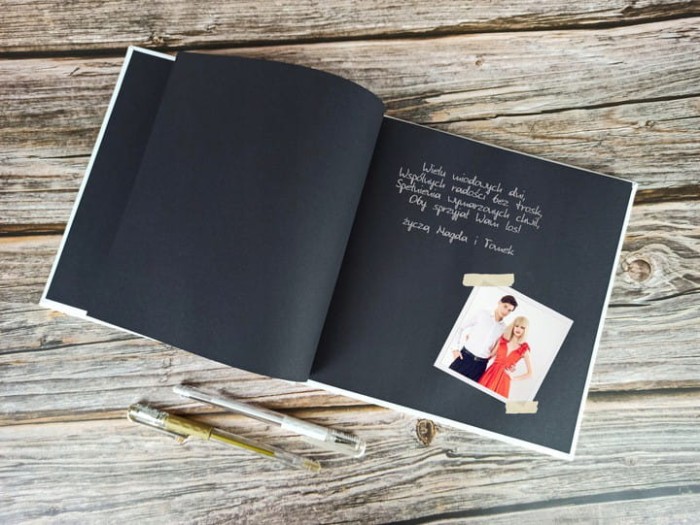 Wielu miodowych dni,
Wspólnych radości bez trosk,
Spełnienia wymarzonych chwil,
Oby sprzyjał Wam los!
życzą Magda i Tomek